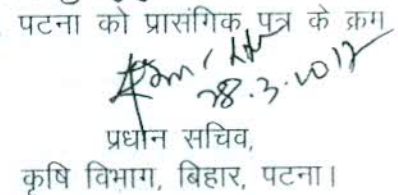 पटना को प्रासंगिक पत्र के क्रम
28.3.2017
प्रधान सचिव,
कृषि विभाग, बिहार, पटना।